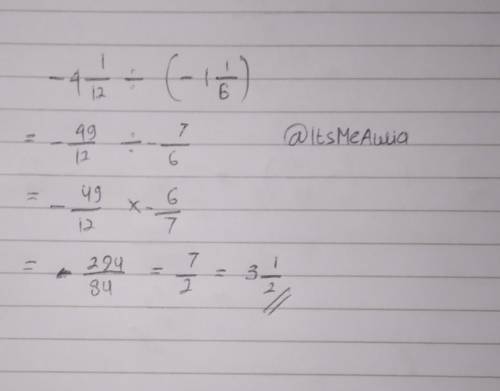 -4 1/12 ÷ (-1 1/6)
= -49/12 ÷ -7/6 @ItsMeAulia
= -49/12 x -6/7
= -294/84 = 7/2 = 3 1/2 //